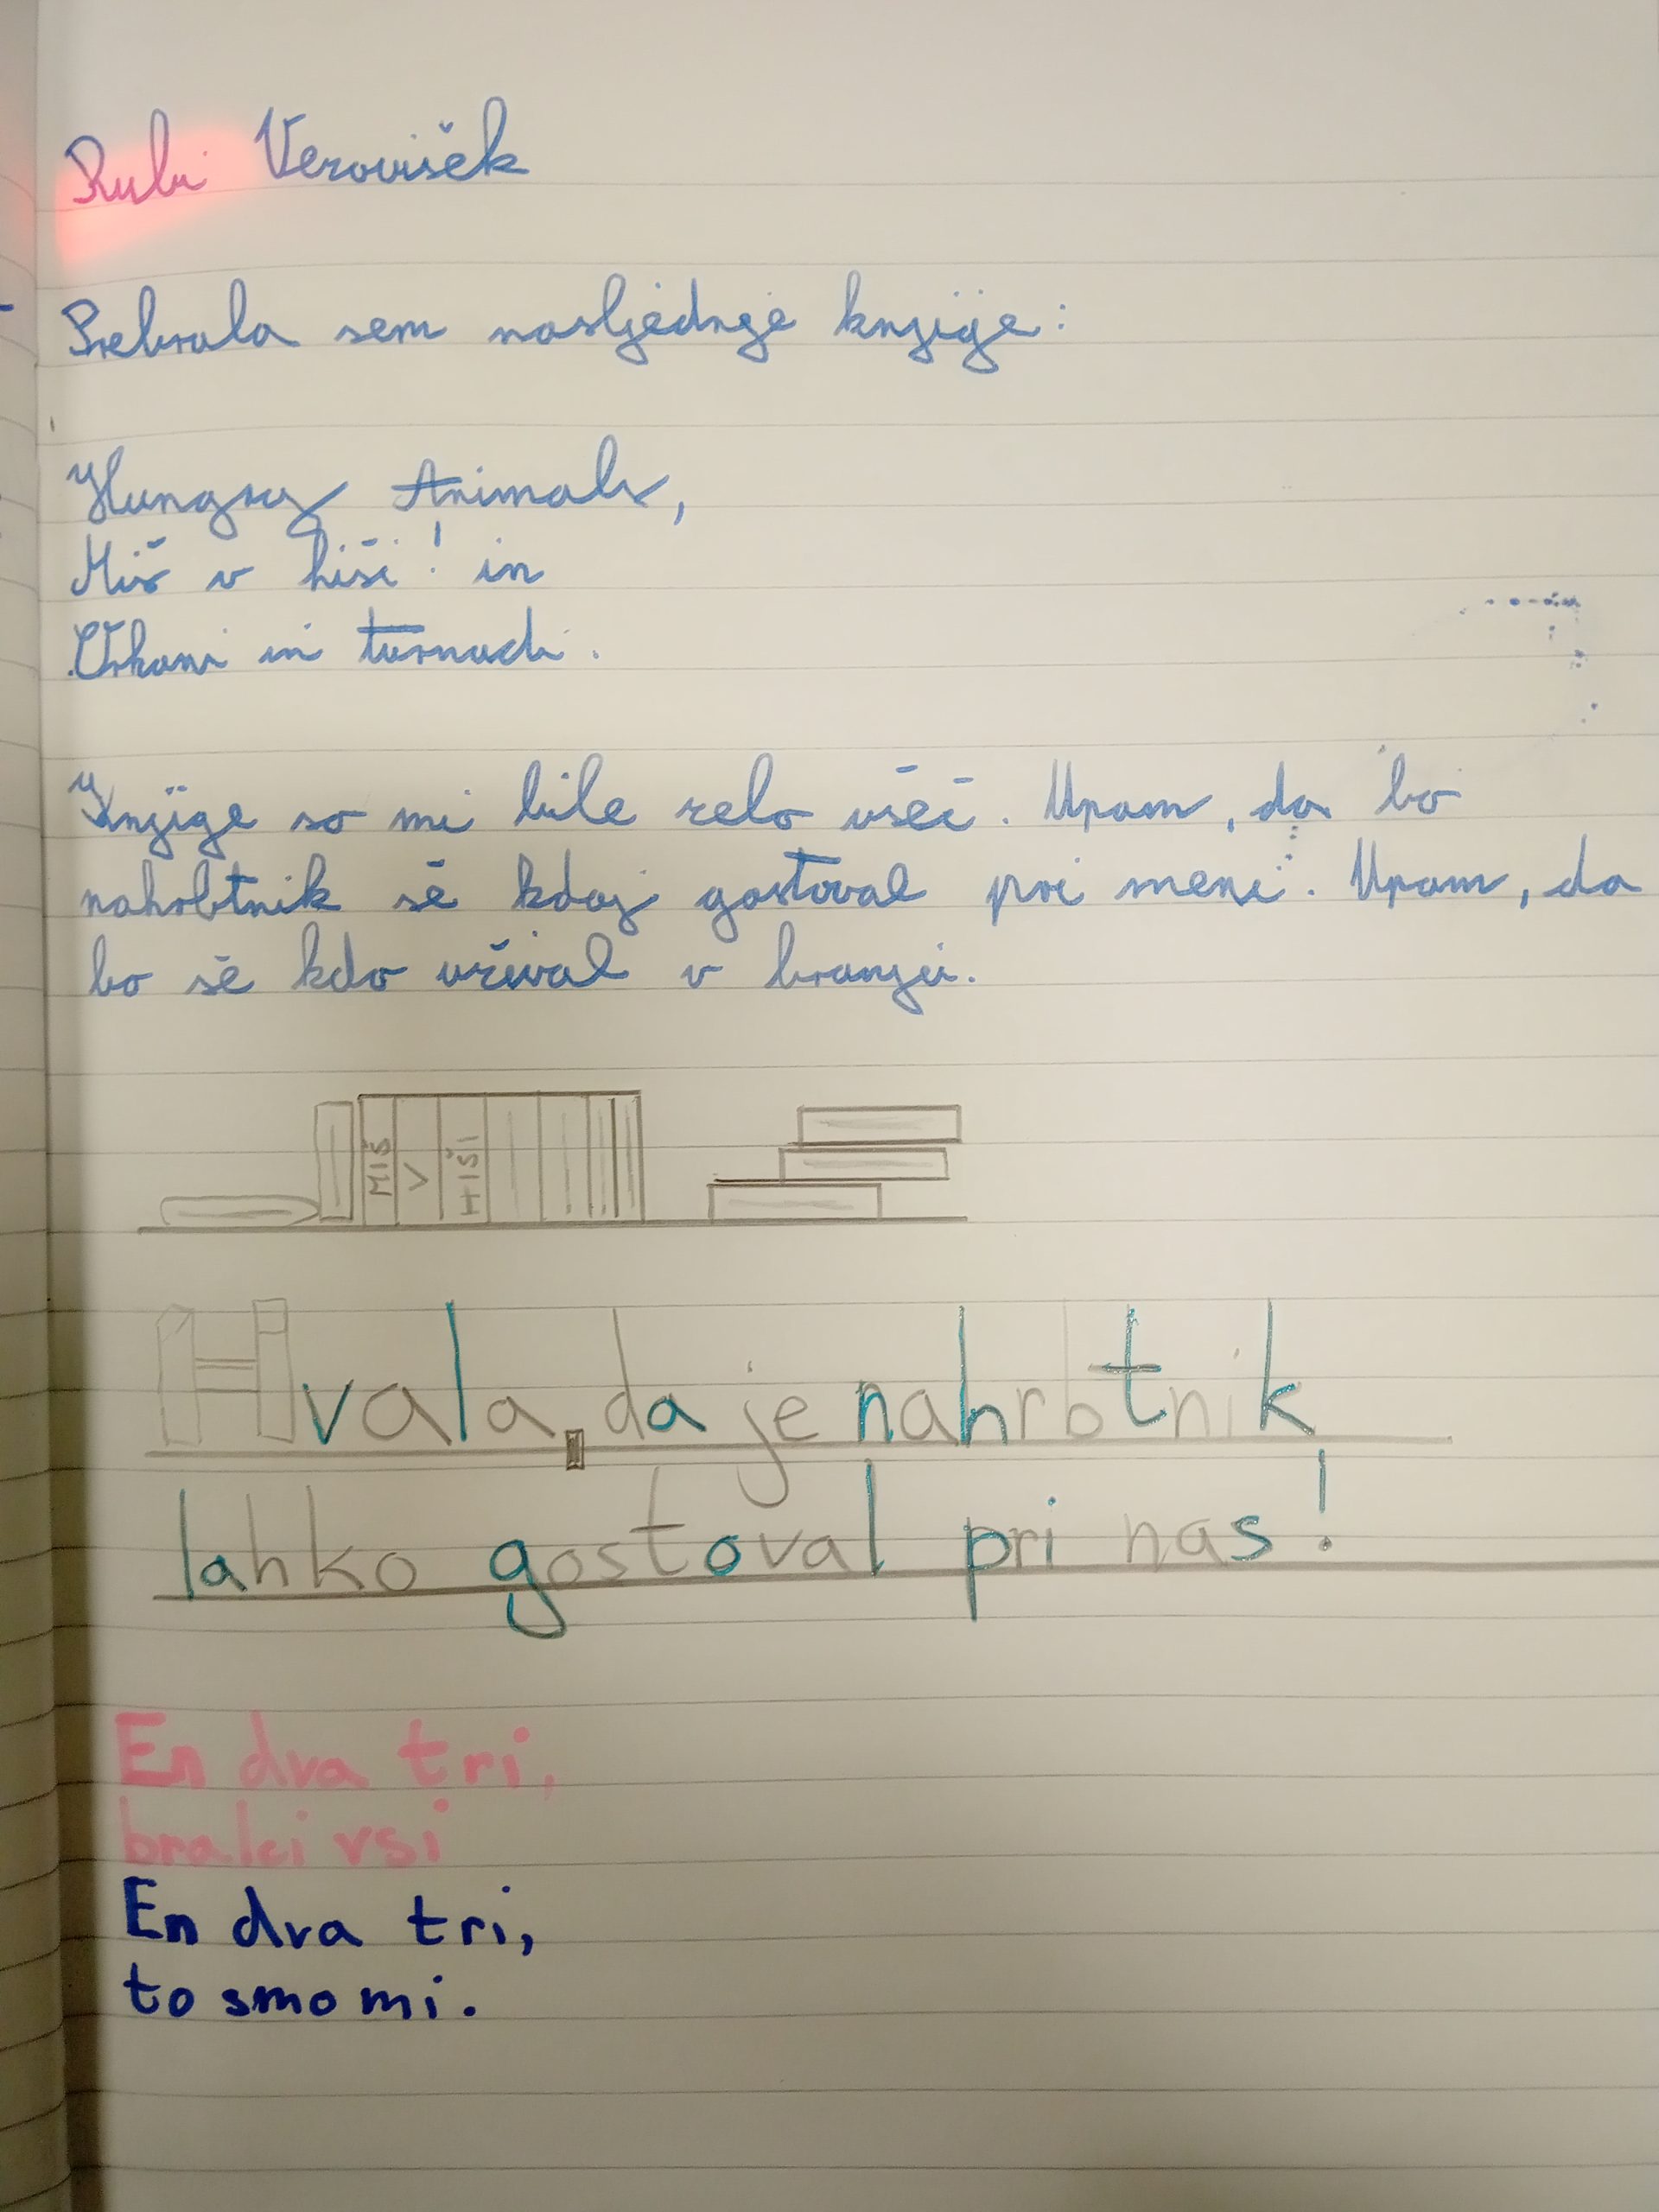 Rubi Verovišek
Prebrala sem nasljednje knjige:
Hungry Animals,
Miš v hiši! in
Orkani in turnadi.
Knjige so mi bile zelo všeč. Upam, da bo
nahrbtnik še kdaj gostoval pri meni. Upam, da
bo še kdo užival v branju.
MIŠ V HIŠI
Hvala, da je nahrbtnik
lahko gostoval pri nas!
En dva tri,
bralci vsi
En dva tri,
to smo mi.